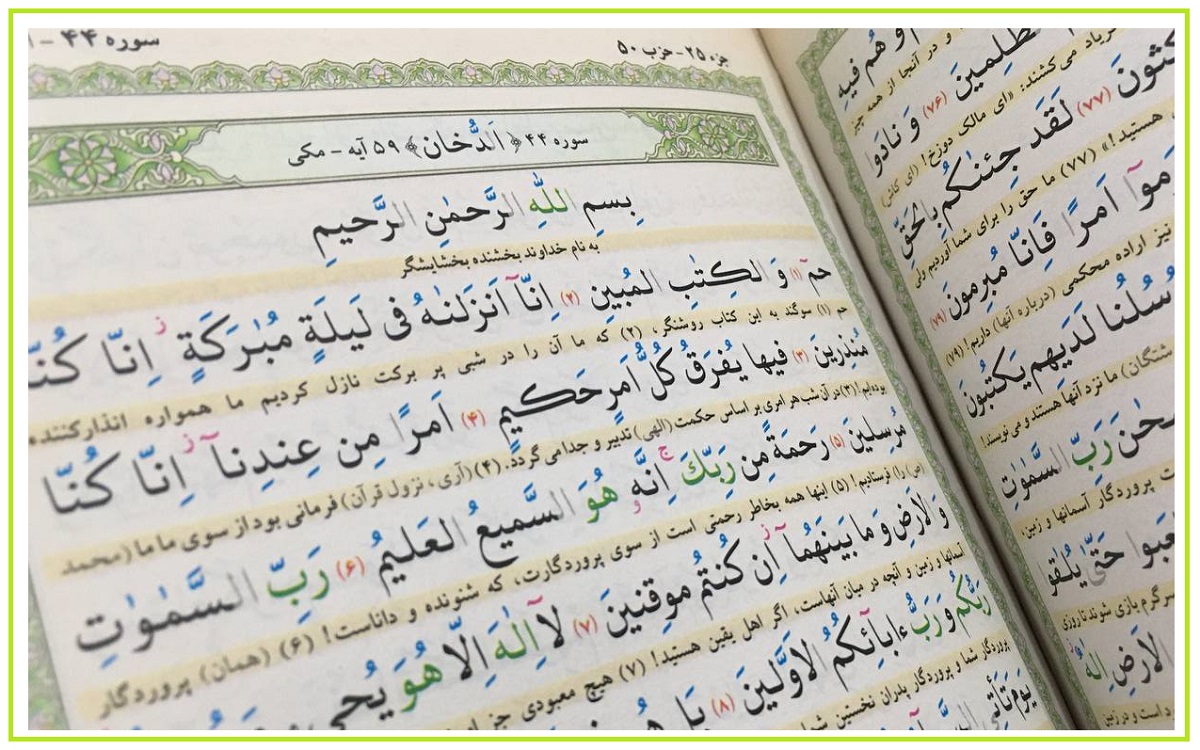 جزء ۲۵ - حزب ۵۰
سوره ۴۴ -
سوره ۴۴ ﴿ اَلدُّخان ﴾ ۵۹ آیه - مکی
بِسمِ اللّٰهِ الرَّحمٰنِ الرَّحیمِ
به نام خداوند بخشنده بخشایشگر
حمٓ (۱) وَ الکِتٰبِ المُبینِ (۲) اِنّآ اَنزَلنٰهُ فی لَیلَةٍ مُبٰرَکَةٍ ز اِنّا کُنّا
حم (۱) سوگند به این کتاب روشنگر، (۲) که ما آن را در شبی پر برکت نازل کردیم ما همواره انذارکننده
مُنذِرینَ (۳) فیها یُفرَقُ کُلُّ اَمرٍ حَکیمٍ (۴) اَمرًا مِن عِندِنآ ز اِنّا کُنّا
بوده‌ایم! (۳) در آن شب هر امری بر اساس حکمت (الهی) تدبیر و جدا می گردد. (۴) (آری، نزول قرآن) فرمانی بود از سوی ما ما (محمد
مُرسِلینَ (۵) رَحمَةً مِن رَبِّکَ ج اِنَّه و هُوَ السَّمیعُ العَلیمُ (۶) رَبِّ السَّمٰوٰتِ
(ص) را) فرستادیم! (۵) اینها همه بخاطر رحمتی است از سوی پروردگارت، که شنونده و داناست! (۶) (همان) پروردگار
وَ الاَرضِ وَ ما بَینَهُمآ ز اِن کُنتُم موقِنینَ (۷) لآ اِلٰهَ اِلّا هُوَ یُحی
آسمانها و زمین و آنچه در میان آنهاست، اگر اهل یقین هستید! (۷) هیچ معبودی جز
رَبُّکُم وَ رَبُّ ءابآئِکُمُ الاَوَّلینَ (۸)
پروردگار شما و پروردگار پدران نخستین شما
یَومَ تَأتِی
وَ هُم فیهِ
و در آنجا از همه چیز
(۷۶) وَ نادَوا
فریاد می کشند: «ای مالک دوزخ! (ای کاش)
(۷۷) لَقَد جِئنٰکُم بِالحَقِّ
هستید!» (۷۷) ما حق را برای شما آوردیم ولی
اَمرًا فَاِنّا مُبرِمونَ (۷۹)
نیز اراده محکمی (درباره آنها) داریم! (۷۹)
لَدَیهِم یَکتُبونَ
ما نزد آنها هستند و می نویسند!
رَبِّ السَّمٰوٰتِ
پروردگار آسمانها و زمین،
حَتّیٰ یُلٰقو
سرگرم بازی شوند تا روزی
الاَرضِ اِلٰهٌ
است و در زمین